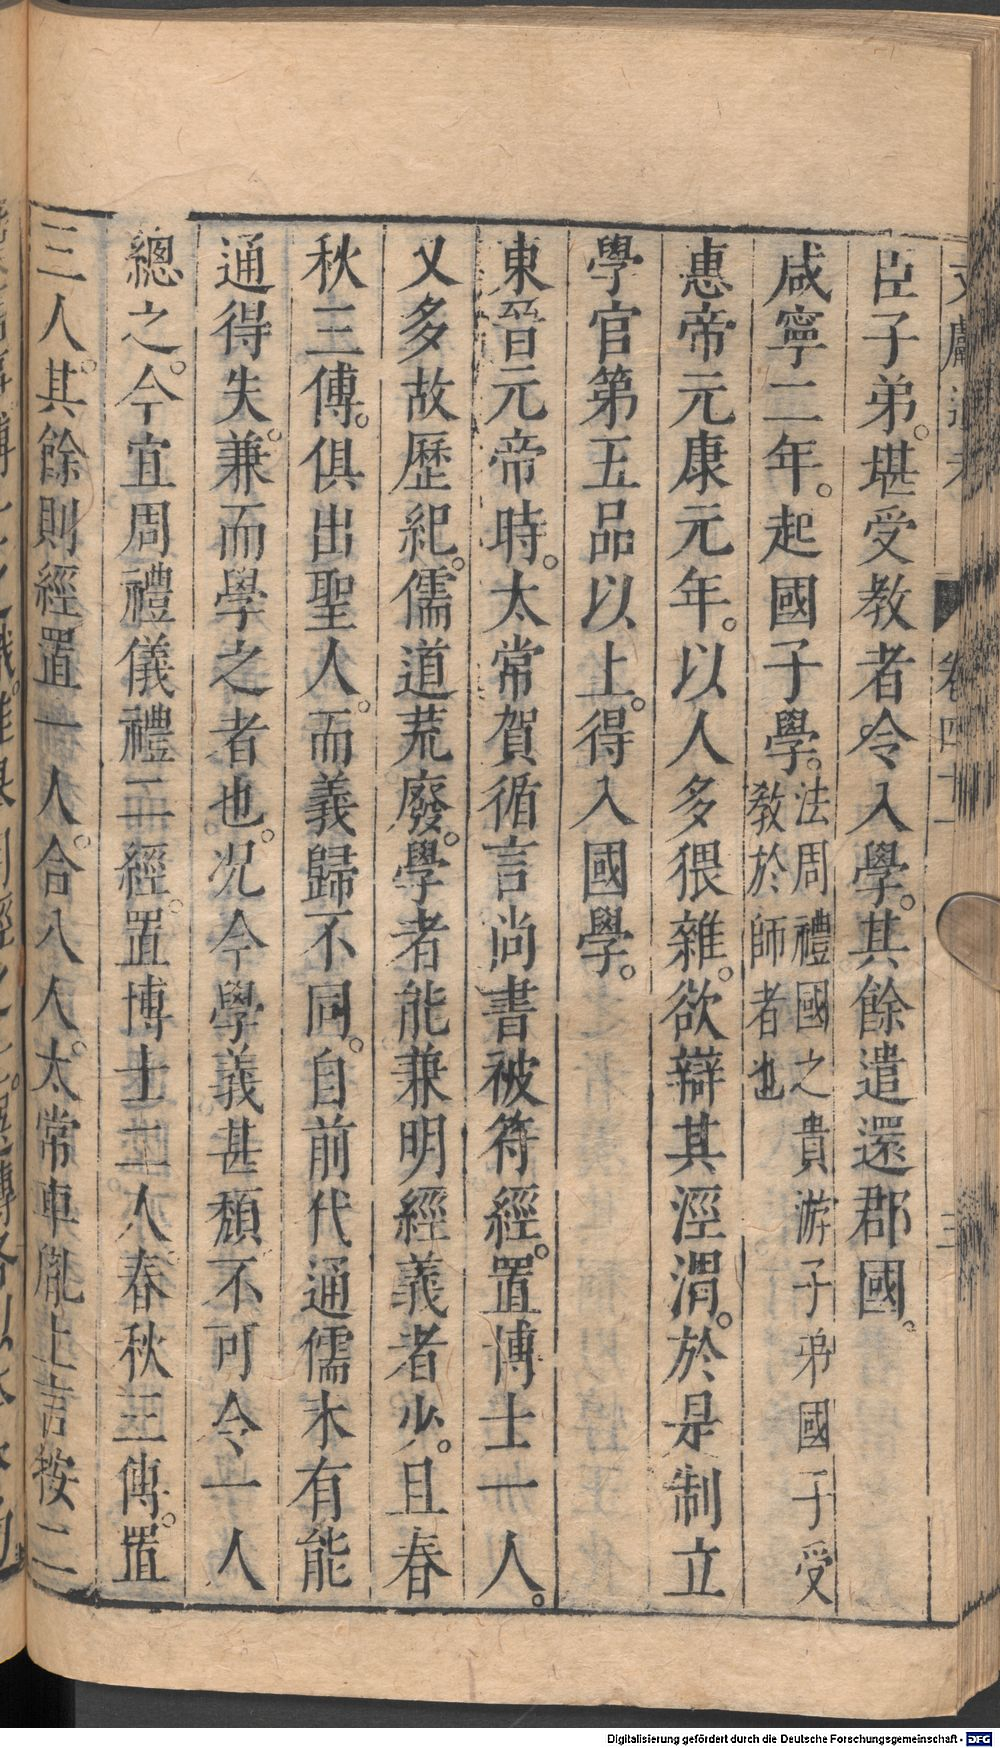 文獻通考 卷四十一 三
臣子弟。堪受教者令入學。其餘遣還郡國。
咸寧二年。起國子學。法周禮國之貴游子弟國子受
教於師者也
惠帝元康元年。以人多猥雜。欲辯其涇渭。於是制立
學官第五品以上。得入國學。
東晉元帝時。太常賀循言尚書被符經。置博士一人。
又多故歷紀。儒道荒廢。學者能兼明經義者少。且春
秋三傳。俱出聖人。而義歸不同。自前代通儒未有能
通得失。兼而學之者也。况今學義甚頹不可令一人
總之。今宜周禮儀禮二經。置博士二人。春秋三傳。置
三人。其餘則經置一人。合八人。太常車胤上言按二
Digitalisierung gefördert durch die Deutsche Forschungsgemeinschaft - DFG